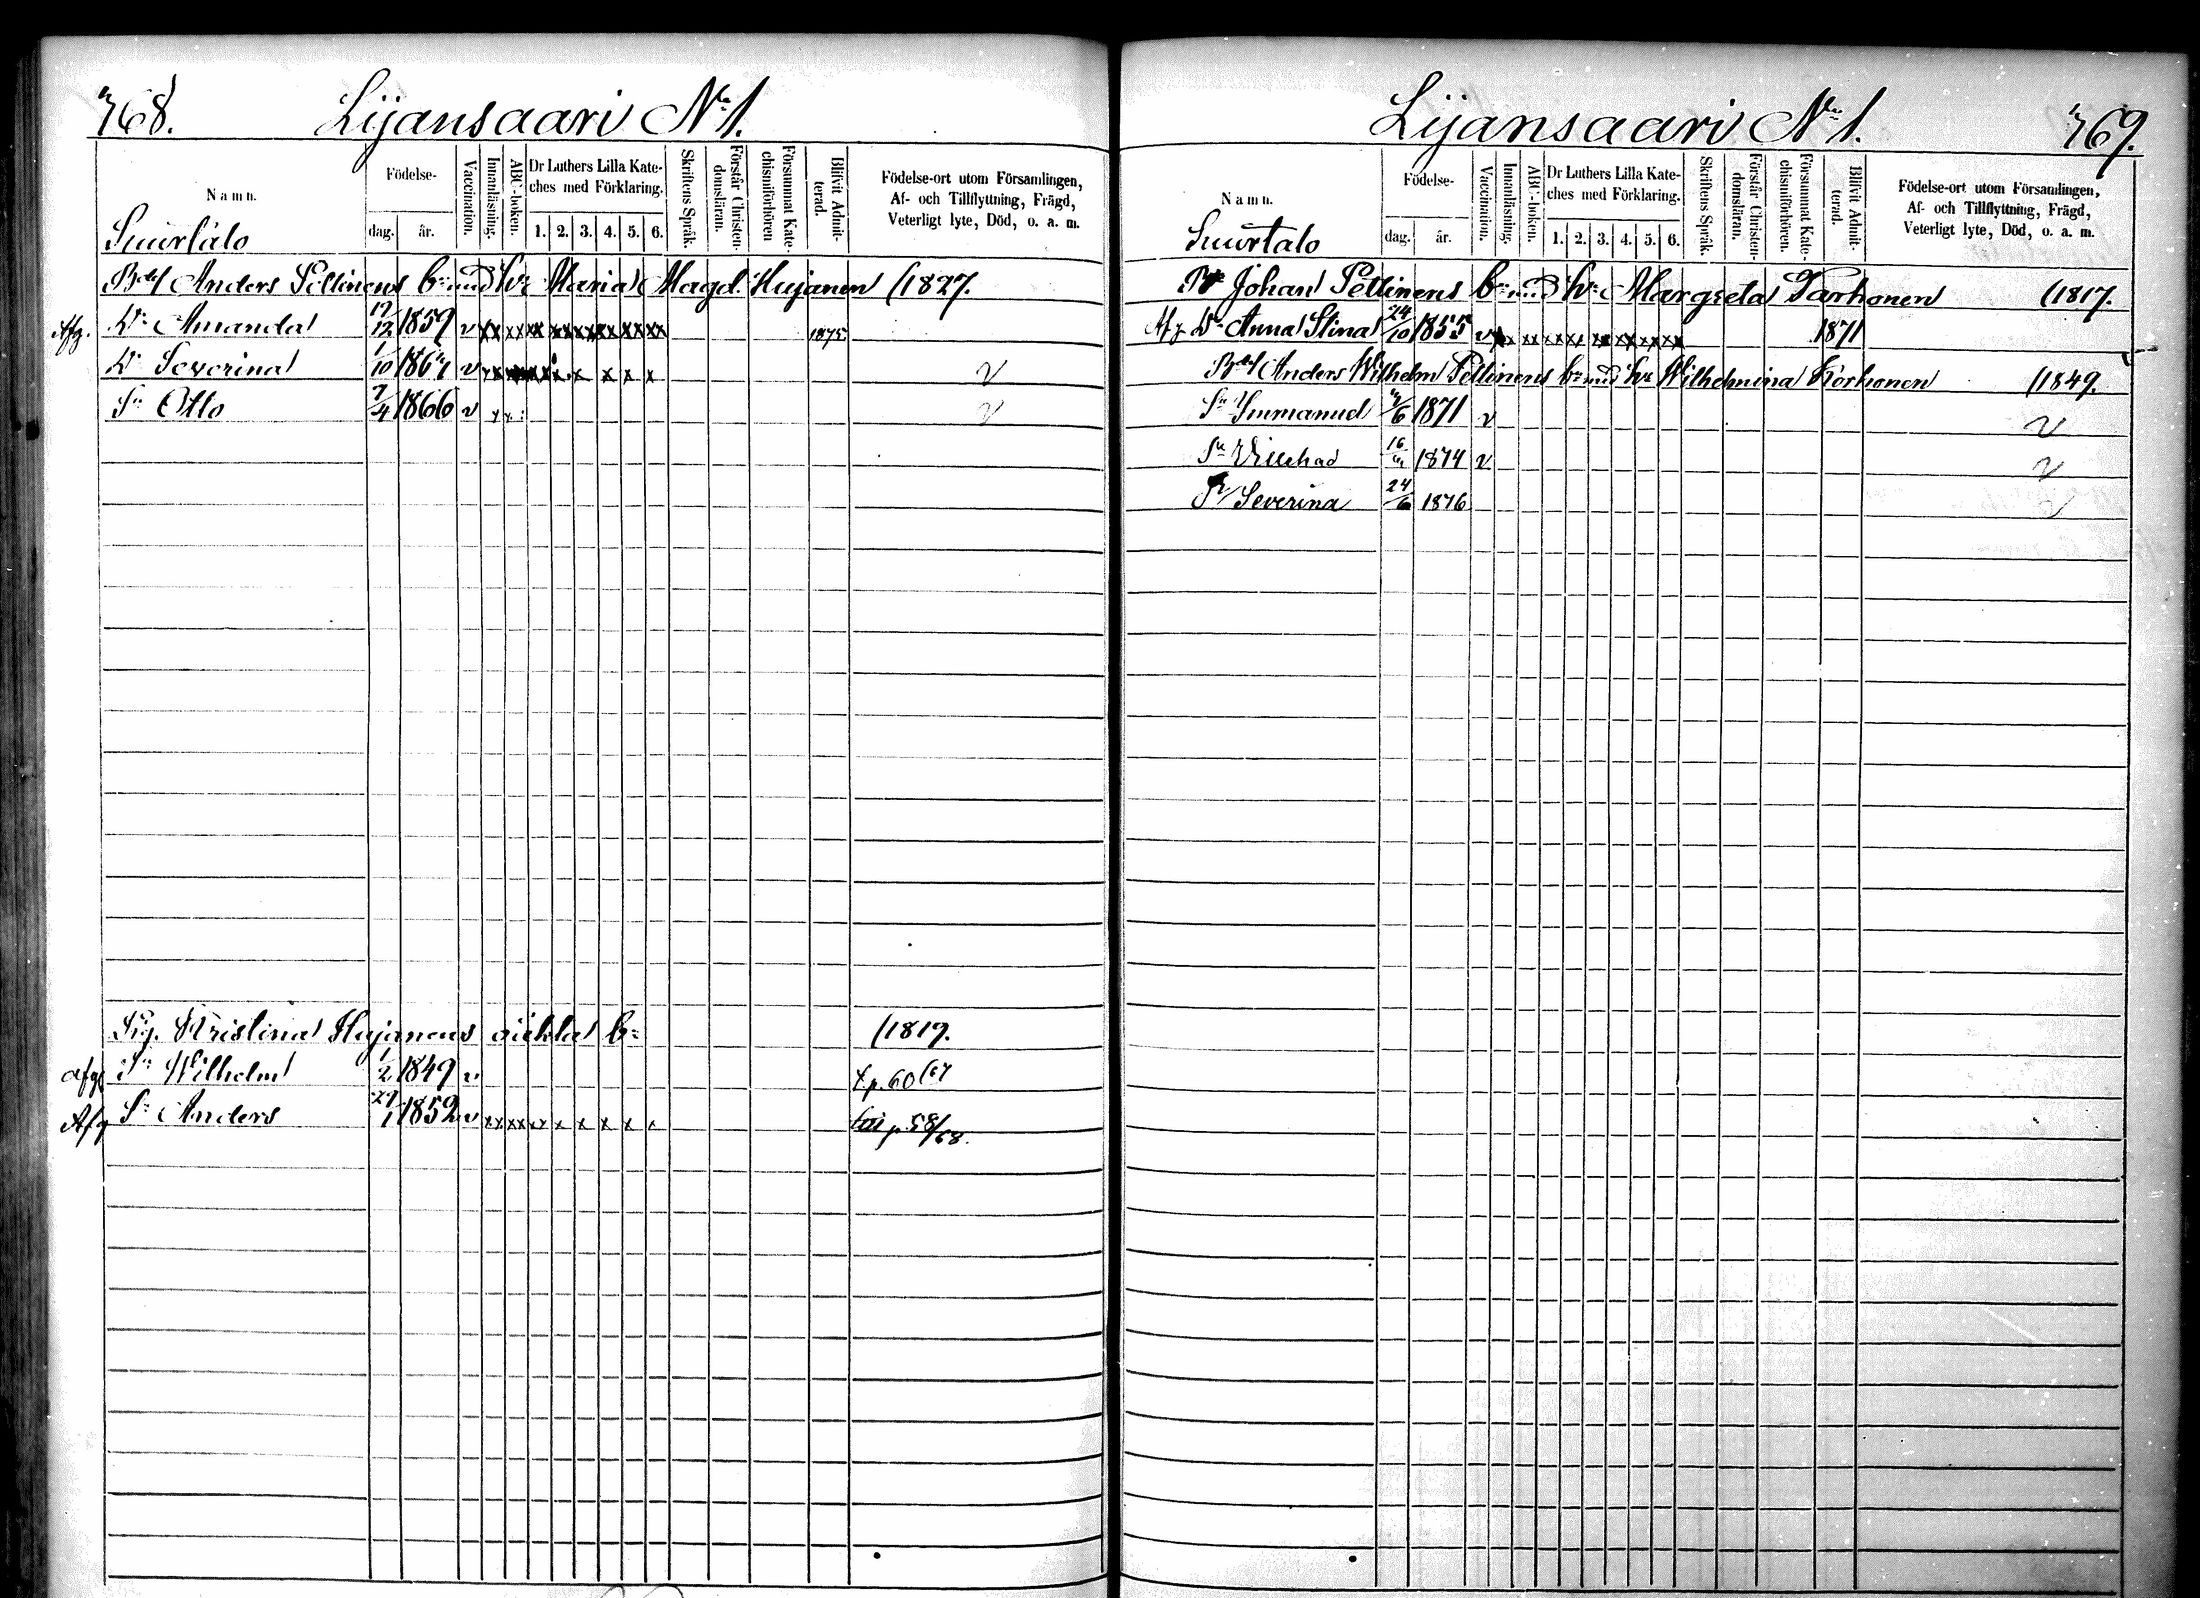 768.
Lijansaari No 1.
Namn.
Födelse-
dag.
år.
Vaccination.
Innanläsning.
ABC-boken.
Dr Luthers Lilla Kate-
ches med Förklaring.
1. 2. 3. 4. 5. 6.
Skriftens Språk.
Förstår Christen-
domsläran.
Försummat Kate-
chismiförhören
Blifvit Admit-
terad.
Födelse-ort utom Församlingen,
Af- och Tillflyttning, Frägd,
Veterligt lyte, Död, o. a. m.
Suurtalo
Anders Pettinens bn med hu Maria Magd. Hujanen (1827.
Afg. Dr Amanda 19/12 1859 v xx xx xx xx xx xx xx xx 1875.
Dr Severina 1/10 1864 v x x x x v
Sn Otto 7/4 1866 v x x v
Kristina Hujanens oäkta bn (1819.
afg Sn Wilhelm 1/2 1849 v p. 60/67
Afg Sn Anders 29/1 1852 v xx xx x x x x x x p. 58/68.
Lijansaari No 1.
769.
Namn.
Födelse-
dag.
år.
Vaccination.
Innanläsning.
ABC-boken.
Dr Luthers Lilla Kate-
ches med Förklaring.
1. 2. 3. 4. 5. 6.
Skriftens Språk.
Förstår Christen-
domsläran.
Försummat Kate-
chismiförhören.
Blifvit Admit-
terad.
Födelse-ort utom Församlingen,
Af- och Tillflyttning, Frägd,
Veterligt lyte, Död, o. a. m.
Suurtalo
Johan Pettinens bn med hu Margreta Tarhonen (1817.
Afg Dr Anna Stina 24/10 1855 v x xx xx xx xx xx xx xx 1871
Anders Wilhelm Pettinens bn med hu Wilhelmina Korhonen (1849.
Sn Immanuel 1871 v v
Sn Villehad 1874 v v
Severina 24/6 1876 v